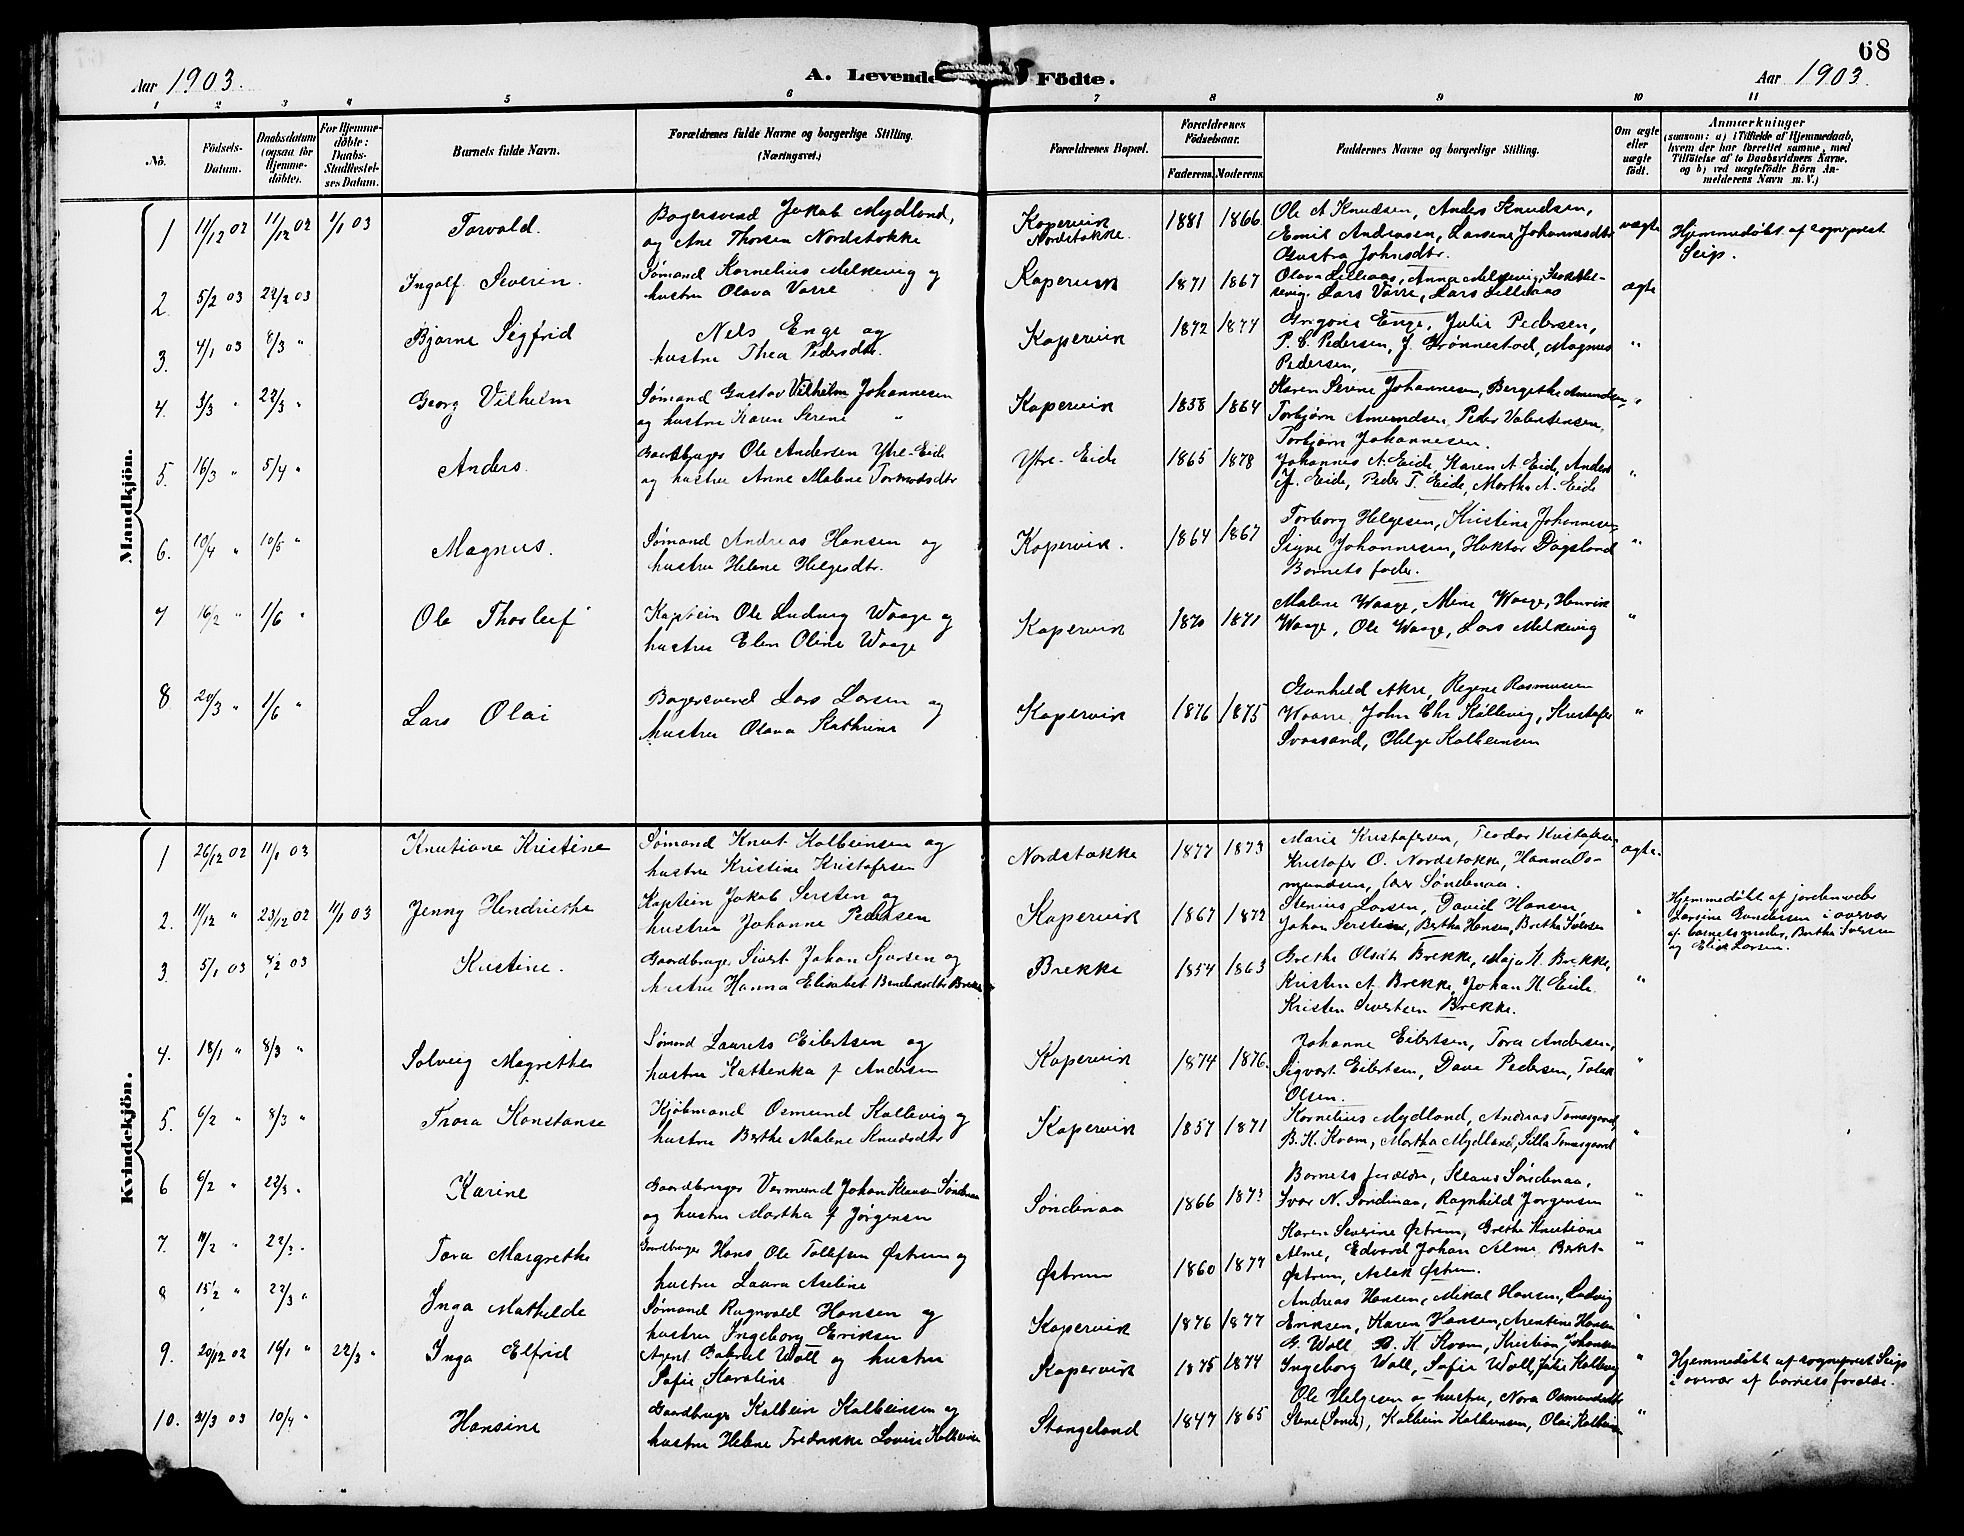 68
Aar 1903.
A. Levende Födte.
Aar 1903.
1 2 3 4 5 6 7 8 9 10 11
No.
Födsels-Datum.
Daabsdatum (ogsaa for Hjemme-döbte).
For Hjemme-döbte: Daabs-Stadfæstel-ses Datum.
Barnets fulde Navn.
Forældrenes fulde Navne og borgerlige Stilling. (Næringsvei.)
Forældrenes Bopæl.
Forældrenes Födselsaar.
Faderens. Moderens.
Faddernes Navne og borgerlige Stilling.
Om ægte eller uægte født.
Anmærkninger
(saasom: a) i Tilfælde af Hjemmedaab, hvem der har forrettet samme, med Tilföielse af to Daabsvidners Navne, og b) ved uægtefödte Börn An-melderens Navn m. V.)
Mandkjön.
1 11/12 02 11/12 02 1/1 03 Torvald. Bagersvend Jakob Mydland, Kopervik 1881 1866 Ole A Knudsen, Anders Knudsen, uægte Hjemmedøbt af sogneprest
og Ane Thorsen Nordstokke Nordstokke. Emil Andreasen, Larsine Johannesdtr Seip.
Gustva Johnsdtr.
2. 5/2 03 22/2 03 Ingolf Severin. Sømand Kornelius Melkevig og Kopervik 1871 1867 Olava Lilleaas, Anna Melkevig,
hustru Olava Varre Lars Varre, Lars Lilleaas ægte
3. 4/1 03 8/3 " Bjarne Sigfrid Nels Enge og Kopervik 1872 1874 Grigorie Enge, Julie Pedersen,
hustru Thea Pedersdtr. P. C. Pedersen, J. Grønnestad, Magnus "
Pedersen,
4. 3/3 " 22/3 " Georg Vilhelm Sømand Gustav Vilhelm Johannesen Kopervik 1838 1864 Karen Serene Johannesen, Bergethe Amundsen, "
og hustru Karen Serene " Torbjørn Amundsen, Peder Valentensen,
Torbjørn Johannesen.
5. 16/3 " 5/4 " Anders. Gaardbruger Ole Andersen Ytre-Eide Ytre-Eide 1865 1878 Johannes A. Eide, Karen A. Eide, Anders "
og hustru Anne Malene Tormodsdtr J. Eide, Peder T. Eide, Martha A. Eide
6. 10/4 " 10/5 " Magnus. Sømand Andreas Hansen og Kopervik. 1864 1867 Torborg Helgesen, Kristine Johannesen, "
hustru Helene Helgesdtr. Signe Johannesen, Haktor Dagsland
Barnets fader.
7 16/2 " 1/6 " Ole Thorleif Kaptein Ole Ludvig Waage og Kopervik 1870 1871 Malene Waage, Mine Waage, Henrik "
hustru Elen Oline Waage Waage, Ole Waage, Lars Melkevig
8 20/3 " 1/6 " Lars Olai Bagersvend Lars Larsen og Kopervik 1876 1875 Gunhild Akre, Regene Rasmusen "
hustru Olava Kathrine Waare, John Chr Kollevig, Kristofer
Svaasand, Helge Kolbeinsen
Kvindekjön.
1 26/12 02 11/1 03 Knutiane Kristine Sømand Knut Kolbeinsen og Nordstokke 1877 1873 Marie Kristofersen, Teodor Kristofersen ægte.
hustru Kristine Kristofersen Kristofer O. Nordstokke, Hanna Os-
mundsen, Søndenaa.
2. 11/12 " 23/12 02 11/1 03 Jenny Hendriethe Kaptein Jakob Sersten og Kopervik 1867 1872 Stenius Larsen, David Hansen " Hjemmedøbt af jordemoder
hustru Johanne Pedersen Johan Sersten, Bertha Hansen, Bertha Iversen Larsine Gundersen i overvær
af barnets moder, Bertha Iversen
og Elise Larsen.
3 5/1 03 8/2 03 Kristine. Gaardbruger Sivert Johan Sjursen og Brekke 1854 1863 Grethe Olsdtr Brekke, Maja K. Brekke, "
hustru Hanna Elisabet Bendiksdtr Brekke Kristen A. Brekke, Johan K. Eide.
Kristen Sivertsen Brekke.
4. 18/1 " 8/3 " Solveig Magrethe Sømand Laurets Eilertsen og Kopervik 1874 1876. Johanne Eilertsen, Tora Andersen, "
hustru Kathenka f Andersen Sigvart Eilertsen, Dave Pedersen, Tolak
Olsen.
5. 6/2 " 8/3 " Trora Konstanse Kjøbmand Osmund Kollevig og Kopervik 1857 1871 Kornelius Mydland, Andreas Tomasgaard, "
hustru Berthe Malene Knudsdtr B. K. Kvam, Martha Mydland, Silla Tomasgaard
6 6/2 " 22/3 " Karine Gaardbruger Vermund Johan Klausen Søndenaa Søndenaa 1866 1873 Barnets forældre, Klaus Søndenaa, "
og hustru Martha f Jørgensen Ivar N. Søndenaa, Ragnhild Jørgensen
7. " 22/3 " Tora Margrethe Gaardbruger Hans Ole Tollefsen Østrem og Østrem 1860 1877 Karen Severine Østrem, Grethe Knutiane "
hustru Laura Aseline Alme, Edvard Johan Alme,
Østrem, Aslak Østrem.
8 15/2 " 22/3 " Inga Mathilde Sømand Ragnvald Hansen og Kopervik 1876 1877 Andreas Hansen, Mikal Hansen, Ludvig "
hustru Ingeborg Eriksen Eriksen, Karen Hansen, Arentine Hansen
9. 20/12 02 16/1 " 22/3 " Inga Elfrid Agent Gabriel Wall og hustru Kopervik 1875 1874 G. Wall, B. K. Kvam, Kristian Johansen " Hjemmedøbt af sogneprest Seip
Sofie Karoline Ingeborg Wall, Sofie Wall, Julie Kollevig i overvær af barnets forældre.
10. 31/3 03 10/4 " Hansine Gaardbruger Kolbein Kolbeinsen og Stangeland 1847 1865 Ole Helgesen og hustru, Nora Osmundsdtr "
hustru Helene Fredrikke Lovise Kolbeinsen Stene (Sand), Kolbein Kolbeinsen, Olai Kolbeinsen